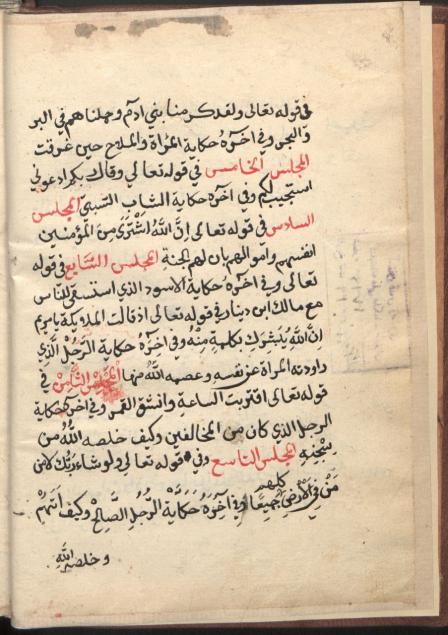 في قوله تعالى ولقد كرمنا بني ادم وحملناهم في البر
والبحر وفي آخره حكاية المرأة والملاح حين غرقت
المجلس الخامس في قوله تعالى وقال ربكم ادعوني
استجب لكم وفي آخره حكاية الشاب النسبي المجلس
السادس في قوله تعالى إن الله اشترى من المؤمنين
انفسهم واموالهم بان لهم الجنة المجلس السابع في قوله
تعالى وفي آخره حكاية الاسود الذي استسقى للناس
مع مالك ابن دينار في قوله تعالى اذ قالت الملايكة يا مريم
ان الله يبشرك بكلمة منه وفي آخره حكاية الرجل الذي
راودته المرأة عن نفسه وعصمه الله منها المجلس الثامن في
قوله تعالى اقتربت الساعة وانشق القمر وفي آخره حكاية
الرجل الذي كان من المخالفين وكيف خلصه الله من
المجلس التاسع وفي قوله تعالى ولو شاء ربك لآمن
من في الأرض كلهم جميعا وفي آخره حكاية الرجل الصالح وكيف اتهم
وخلصه الله